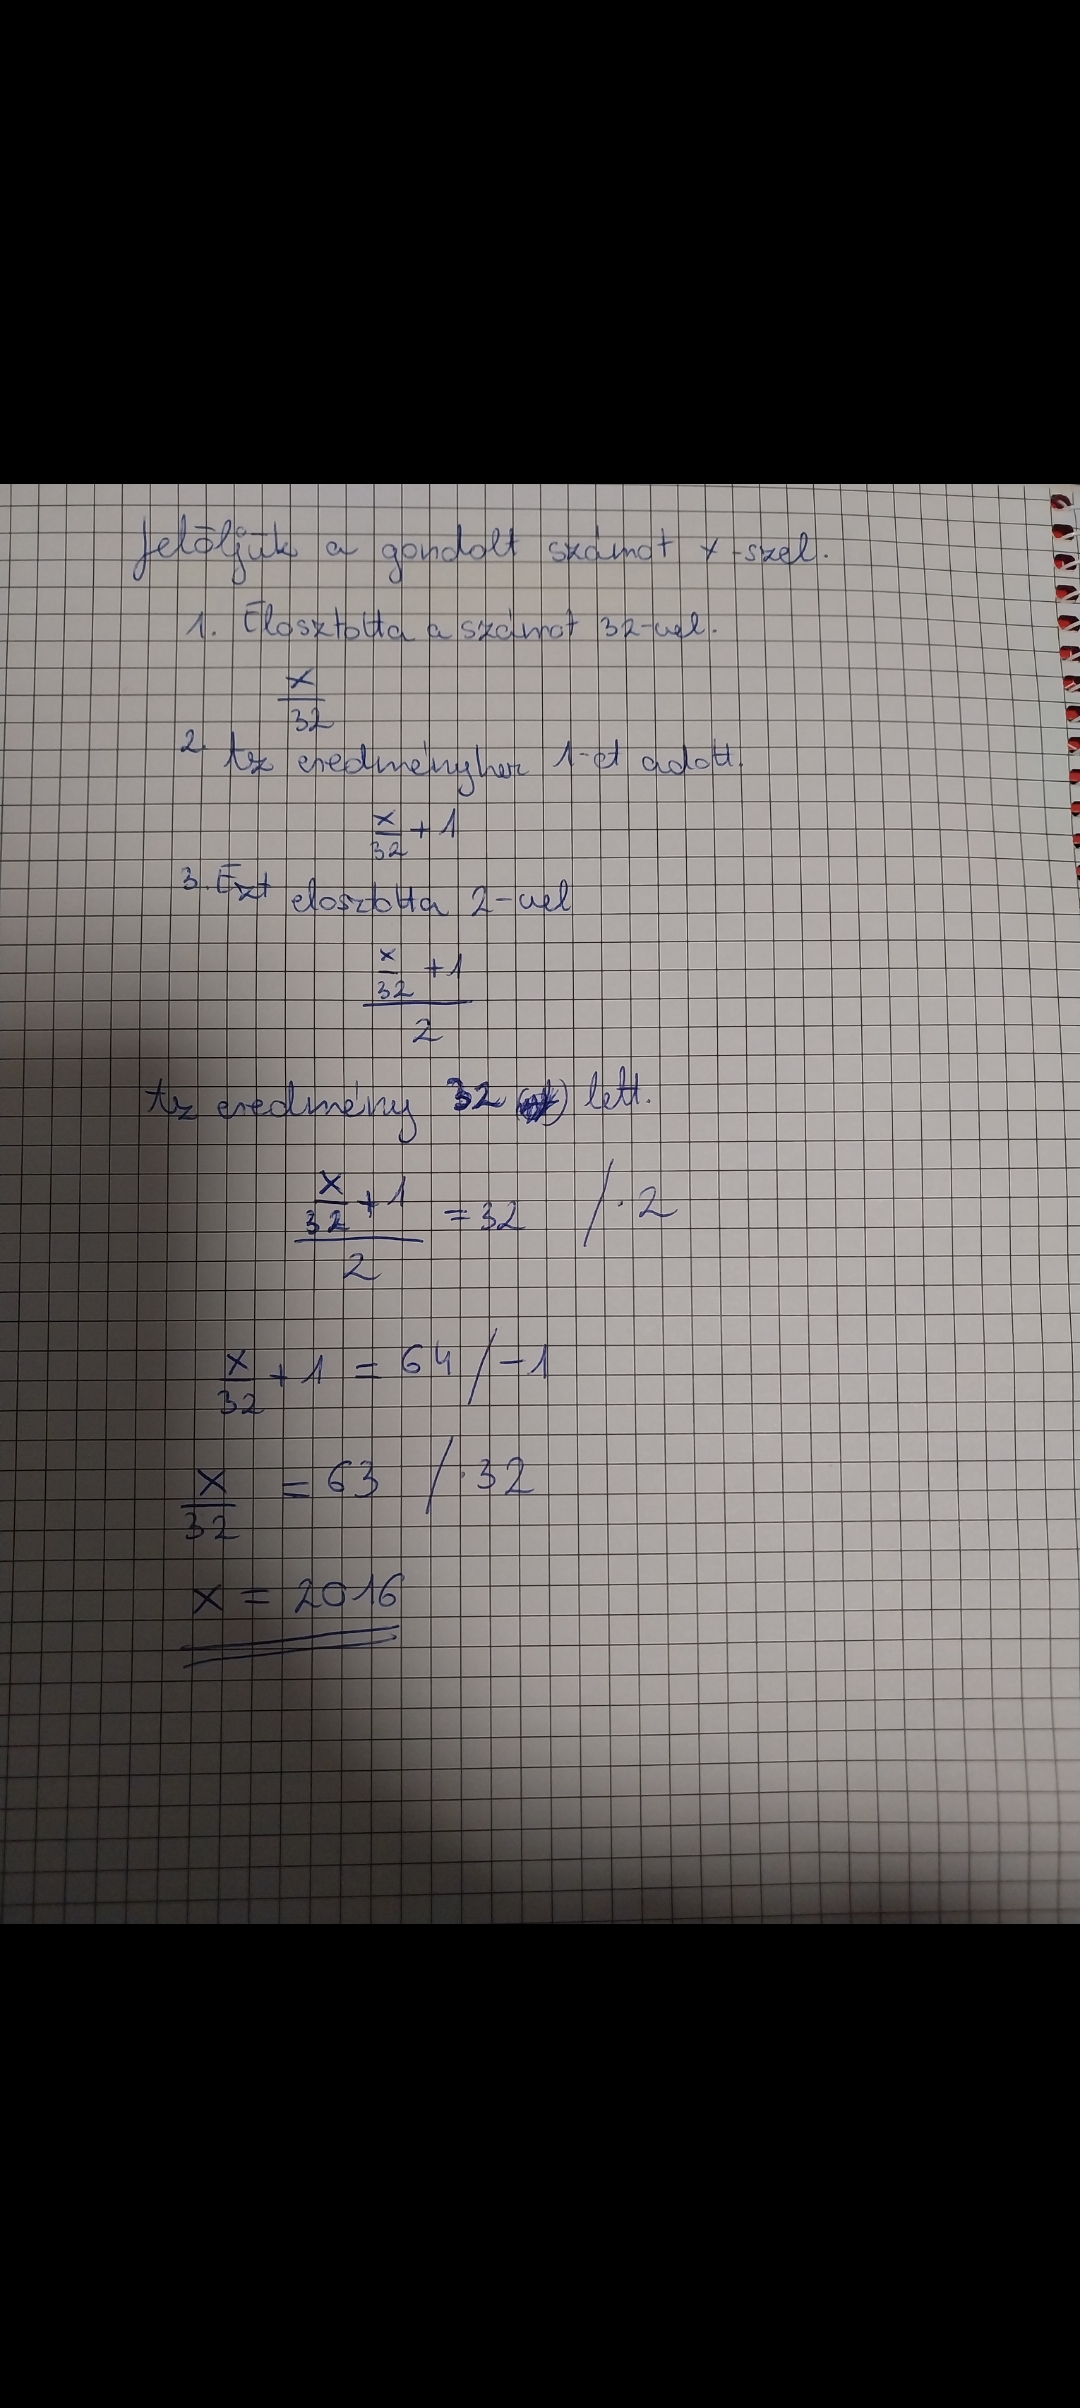 Jelöljük a gondolt számot x-szel.
1. Elosztotta a számot 32-vel.
x/32
2. Az eredményhez 1-et adott.
x/32 + 1
3. Ezt elosztotta 2-vel
(x/32 + 1)/2
Az eredmény 32 lett.
(x/32 + 1)/2 = 32 /·2
x/32 + 1 = 64 /-1
x/32 = 63 /·32
x = 2016